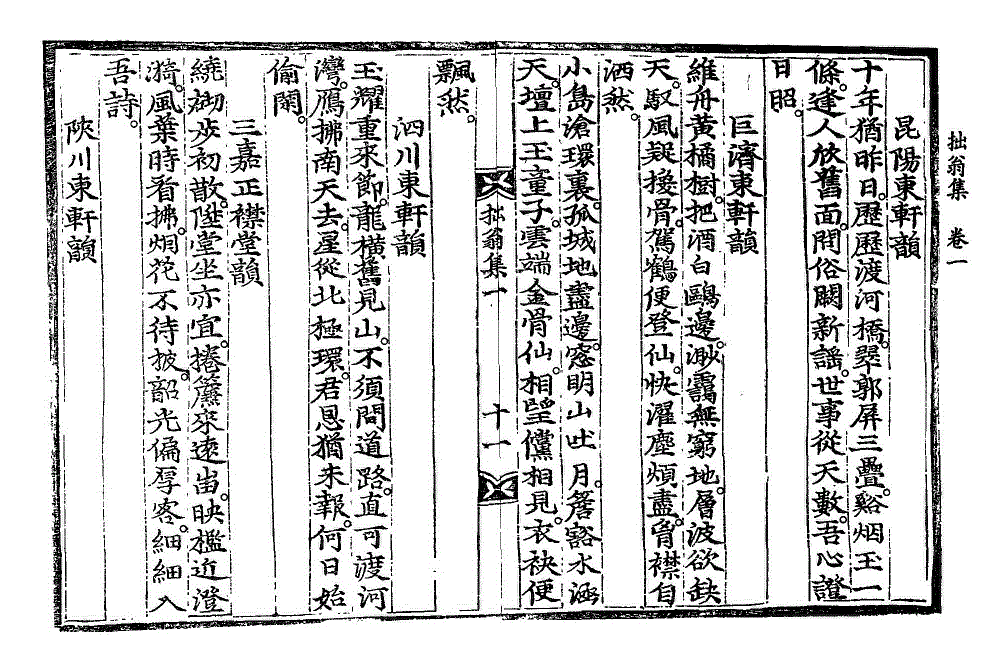 拙翁集 卷一
昆陽東軒韻
十年猶昨日。歷歷渡河橋。翠郭屏三疊。谿烟玉一
條。逢人欣舊面。問俗闕新謠。世事從天數。吾心證
日昭。
巨濟東軒韻
維舟黃橘樹。把酒白鷗邊。渺靄無窮地。層波欲缺
天。馭風疑換骨。駕鶴便登仙。快濯塵煩盡。胷襟自
洒然。
小島滄環裏。孤城地盡邊。窓明山吐月。簷豁水涵
天。壇上玉童子。雲端金骨仙。相望儻相見。衣袂便
飄然。
拙翁集一 十一
泗川東軒韻
玉耀重來節。龍橫舊見山。不須問道路。直可渡河
灣。鴈拂南天去。星從北極環。君恩猶未報。何日始
偷閑。
三嘉正襟堂韻
繞砌步初散。陞堂坐亦宜。捲簾來遠岫。映檻近澄
漪。風葉時看拂。烟花不待披。韶光偏厚客。細細入
吾詩。
陜川東軒韻